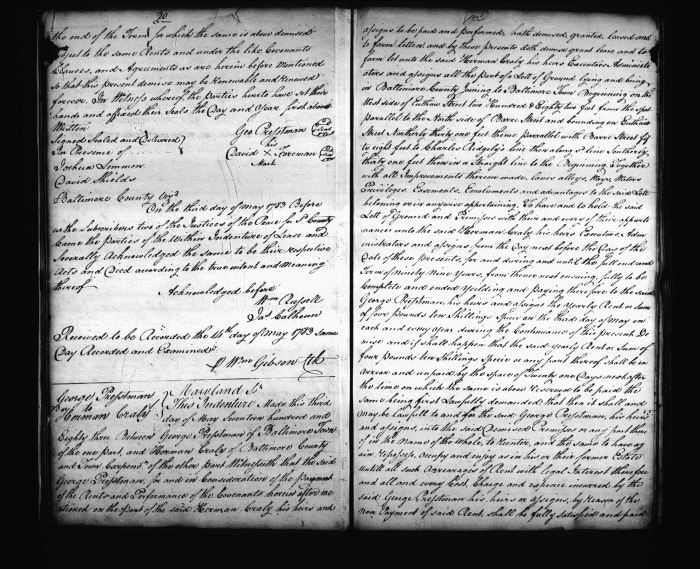 20
the end of the Term for which the same is above demised
subject to the same Rents and under the like Covenants
Clauses, and Agreements as are herein before Mentioned
so that this present demise may be Renewable and Renewed
forever. In Witness whereof the Parties hereto have set their
hands and affixed their Seals the Day and Year first above
Written
Signed Sealed and Delivered
In Presence of
Geo Presstman
his
David Foreman
Mark
Joshua Lemmon
David Shields
Baltimore County
On the third day of May 1783 Before
us the Subscribers two of the Justices of the Peace for Sd County
Came the Parties of the Within Indenture of Lease and
Severally Acknowledged the same to be their respective
Acts and Deed according to the true intent and Meaning
thereof
Acknowledged before
Wm Russell
Jas Calhoun
Received to be Recorded the 14th day of May 1783 same
Day Recorded and Examined
Wm Gibson Clk
George Presstman
to
Herman Craly
Maryland Sc
This Indenture Made this third
day of May Seventeen hundred and
Eighty three Between George Presstman of Baltimore Town
of the one part, and Herman Craly of Baltimore County
and Town Carpenr of the other Part Witnesseth that the said
George Presstman, for and in Consideration of the Payment
of the Rents and Performance of the Covenants herein after me
ntioned on the Part of the said Herman Craly his heirs and
assigns to be paid and performed, hath demised, granted, leased and
to farm letten and by these presents doth demise grant lease and to
farm let unto the said Herman Craly his heirs Executors Administr
ators and assigns all that part of a Lott of Ground lying and being
in Baltimore County joining to Baltimore Town Beginning on the
West side of Eutaw Street two Hundred & Eighty two feet from the spot
parallel to the North side of Barre Street and bounding on Eutaw
Street Northerly thirty one feet thence parallel with Barre Street fif
ty eight feet to Charles Ridgely's line thence along sd line Southerly
thirty one feet thence in a straight line to the Beginning Together
with all Improvements thereon made, lanes alleys, Ways, Waters
Priviledges Easments, Emoluments and advantages to the said Lott
belonging or in anywise appertaining. To have and to hold the said
Lott of Ground and Premisses with their and every of their appurte
nances unto the said Herman Craly his heirs Executors Adm
inistrators and assigns from the day next before the Day of the
Date of these presents, for and during and untill the full end and
Term of Ninety Nine Years, from thence next ensuing, fully to be
Complete and ended Yielding and Paying therefore to the said
George Presstman, his heirs and assigns the Yearly Rent or Sum
of four Pounds ten Shillings Specie on the third day of May in
each and every year during the Continuance of this present De
mise and if shall happen that the said Yearly Rent or Sum of
four Pounds ten Shillings Specie or any part thereof shall be in
arrear and unpaid by the space of Twenty one Days next after
the time on which the same is above reserved to be paid the
same being first Lawfully demanded that then it shall and
may be lawfull to and for the said George Presstman, his heirs
and assigns, into the said Demised Premisses or any part there
of in the Name of the Whole, to reenter, and the same to have ag
ain repossess, Occupy and enjoy as in his or their former Estate
untill all such Arrearages of Rent with legal Interest therefore
and all and every Cost Charge and expence incurred by the
said George Presstman his heirs or Assigns, by reason of the
non Payment of said Rent, shall be fully satisfied and paid